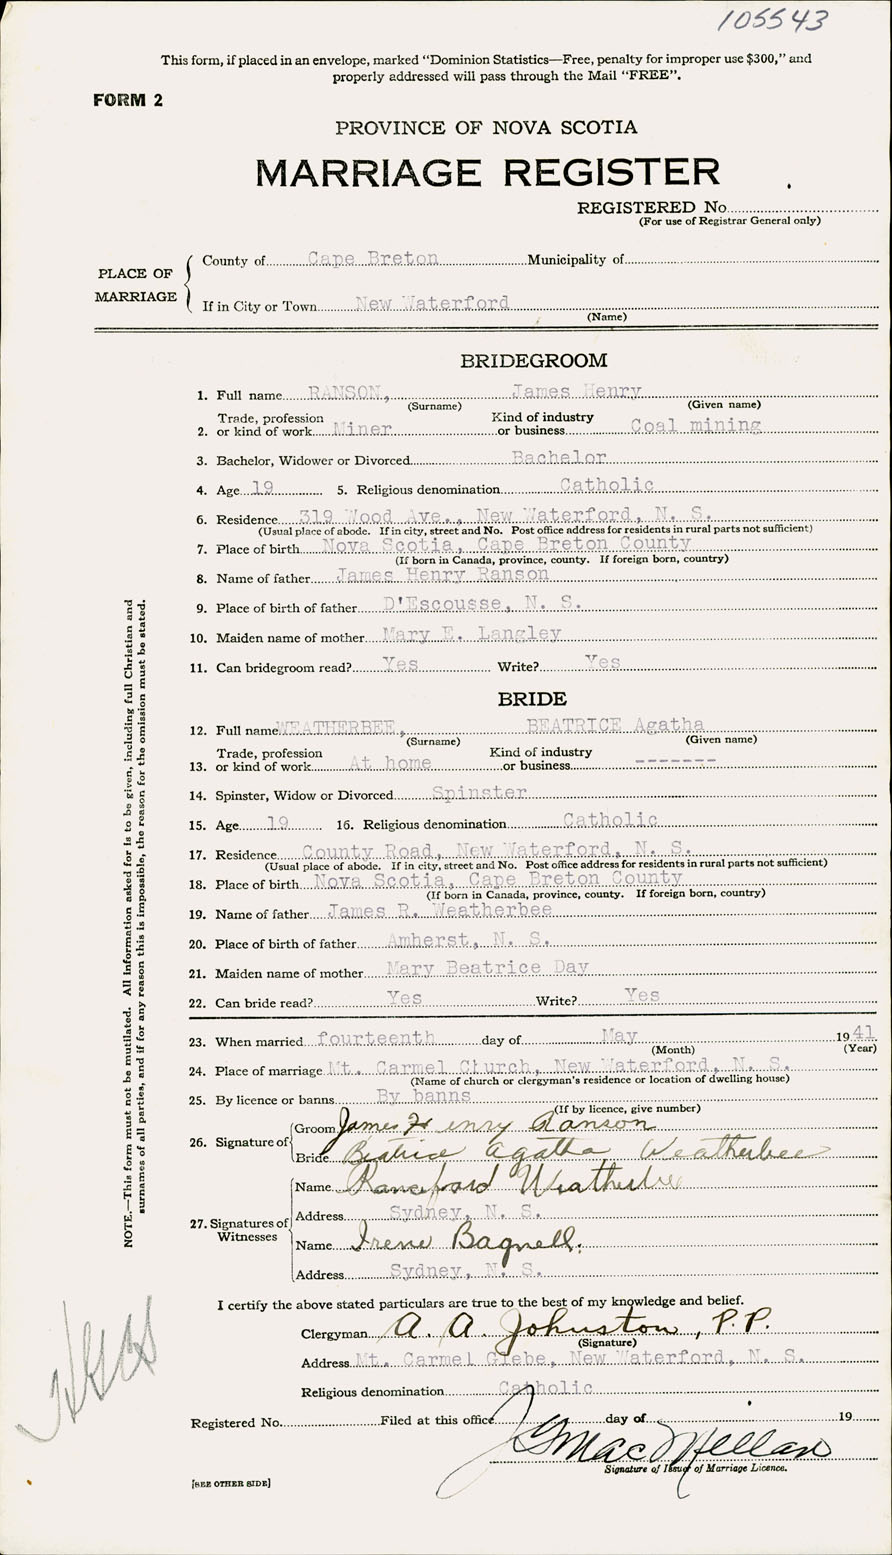 105543
This form, if placed in an envelope, marked “Dominion Statistics—Free, penalty for improper use $300,” and
properly addressed will pass through the Mail “FREE”.
FORM 2
PROVINCE OF NOVA SCOTIA
MARRIAGE REGISTER
REGISTERED No.
(For use of Registrar General only)
PLACE OF MARRIAGE
County of Cape Breton Municipality of
If in City or Town New Waterford
(Name)
BRIDEGROOM
1. Full name RANSON, James Henry
(Surname) (Given name)
Trade, profession Kind of industry
2. or kind of work Miner or business Coal mining
3. Bachelor, Widower or Divorced Bachelor
4. Age 19 5. Religious denomination Catholic
6. Residence 319 Wood Ave., New Waterford, N. S.
(Usual place of abode. If in city, street and No. Post office address for residents in rural parts not sufficient)
7. Place of birth Nova Scotia, Cape Breton County
(If born in Canada, province, county. If foreign born, country)
8. Name of father James Henry Ranson
9. Place of birth of father D'Escousse, N. S.
10. Maiden name of mother Mary E. Langley
11. Can bridegroom read? Yes Write? Yes
BRIDE
12. Full name WEATHERBEE, BEATRICE Agatha
(Surname) (Given name)
Trade, profession Kind of industry
13. or kind of work At home or business -------
14. Spinster, Widow or Divorced Spinster
15. Age 19 16. Religious denomination Catholic
17. Residence County Road, New Waterford, N. S.
(Usual place of abode. If in city, street and No. Post office address for residents in rural parts not sufficient)
18. Place of birth Nova Scotia, Cape Breton County
(If born in Canada, province, county. If foreign born, country)
19. Name of father James R. Weatherbee
20. Place of birth of father Amherst, N. S.
21. Maiden name of mother Mary Beatrice Day
22. Can bride read? Yes Write? Yes
23. When married fourteenth day of May 1941
(Month) (Year)
24. Place of marriage Mt. Carmel Church, New Waterford, N. S.
(Name of church or clergyman's residence or location of dwelling house)
25. By licence or banns By banns
(If by licence, give number)
26. Signature of
Groom James Henry Ranson
Bride Beatrice Agatha Weatherbee
27. Signatures of Witnesses
Name Weatherbee
Address Sydney, N. S.
Name Irene Bagnell.
Address Sydney, N. S.
I certify the above stated particulars are true to the best of my knowledge and belief.
Clergyman A. A. Johnston, P.P.
(Signature)
Address Mt. Carmel Glebe, New Waterford, N. S.
Religious denomination Catholic
Registered No. Filed at this office day of 19
J G MacLellan
Signature of Issuer of Marriage Licence.
[SEE OTHER SIDE]
NOTE.—This form must not be mutilated. All Information asked for is to be given, including full Christian and
surnames of all parties, and if for any reason this is impossible, the reason for the omission must be stated.